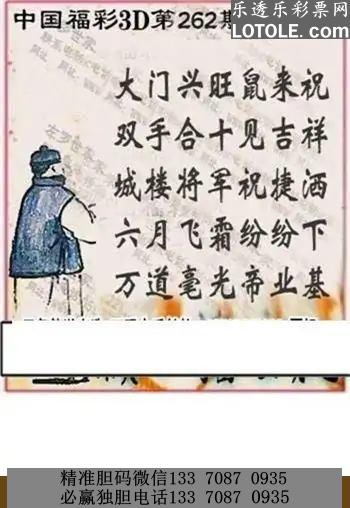 中国福彩3D第262期
乐透乐彩票网
LOTOLE.COM
大门兴旺鼠来祝
双手合十见吉祥
城楼将军祝捷酒
六月飞霜纷纷下
万道毫光帝业基
精准胆码微信133 7087 0935
必赢独胆电话133 7087 0935